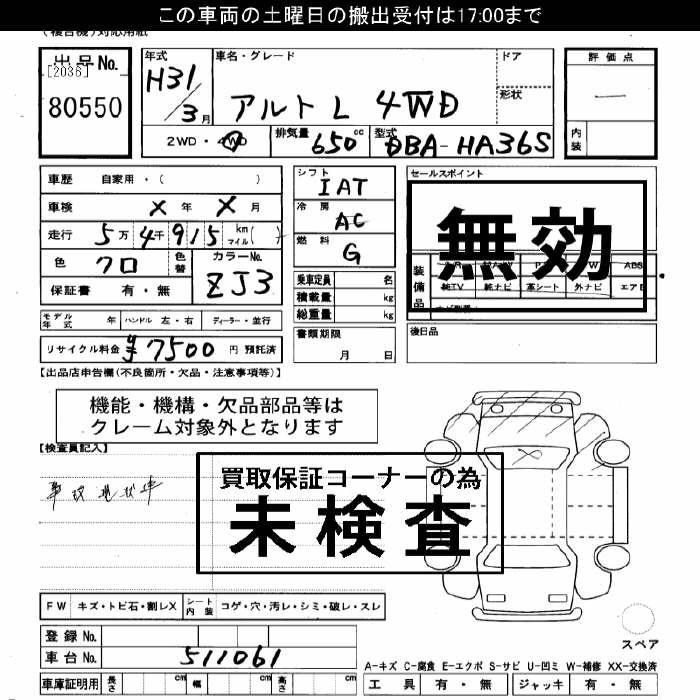 この車両の土曜日の搬出受付は17:00まで
(複合機)対応用紙
出品No.
[2036]
80550
年式 車名・グレード ドア 評価点
H31/3月 アルト L 4WD 形状
2WD・4WD 排気量 650cc 型式 DBA-HA36S 内装
車歴 自家用・( )
車検 X年 X月
走行 5万4千915 km マイル( )
色 クロ 色替 カラーNo. ZJ3
保証書 有・無
シフト IAT
冷房 AC
燃料 G
乗車定員 名
積載量 kg
総重量 kg
書類期限 月 日
セールスポイント
無効
装備品 ABS
純TV 純ナビ 革シート 外ナビ エアB
後日品
モデル年式 年 ハンドル 左・右 ディーラー・並行
リサイクル料金 ¥7500 円 預託済
【出品店申告欄(不良箇所・欠品・注意事項等)】
機能・機構・欠品部品等は
クレーム対象外となります
【検査員記入】
買取保証コーナーの為
未検査
事故現状車
FW キズ・トビ石・割レX シート内装 コゲ・穴・汚レ・シミ・破レ・スレ
登録No.
車台No. 511061
車庫証明用 長さ cm 幅 cm 高さ cm
スペア
A-キズ C-腐食 E-エクボ S-サビ U-凹ミ W-補修 XX-交換済
工具 有・無 ジャッキ 有・無